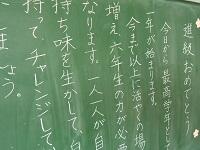 進級おめでとう
今日から最高学年として
一年が始まります。
今まで以上に活やくの場
増え六年生の力が必要
なります。一人一人が自
持ち味を生かして、自
持って、チャレンジして
ましょう。